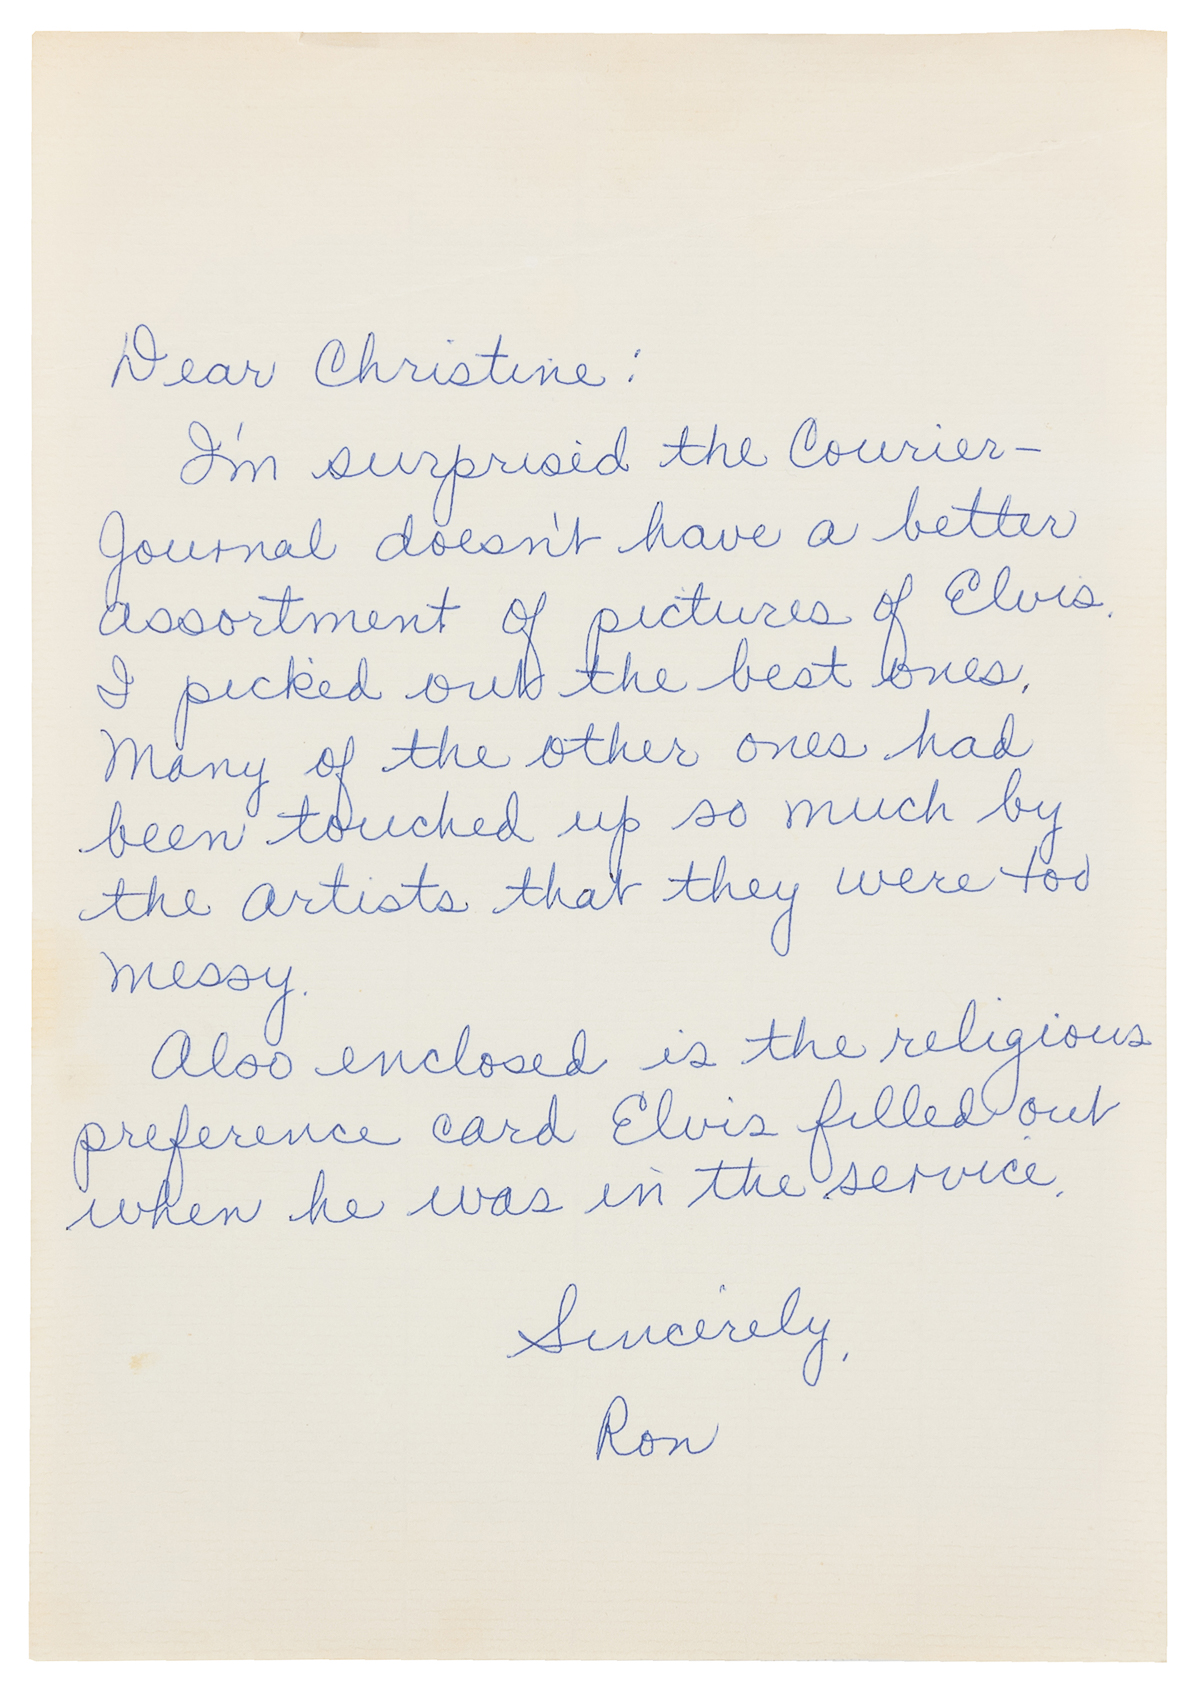 Dear Christine:
I'm surprised the Courier-
Journal doesn't have a better
assortment of pictures of Elvis.
I picked out the best ones.
Many of the other ones had
been touched up so much by
the artists that they were too
messy.
Also enclosed is the religious
preference card Elvis filled out
when he was in the service.
Sincerely,
Ron